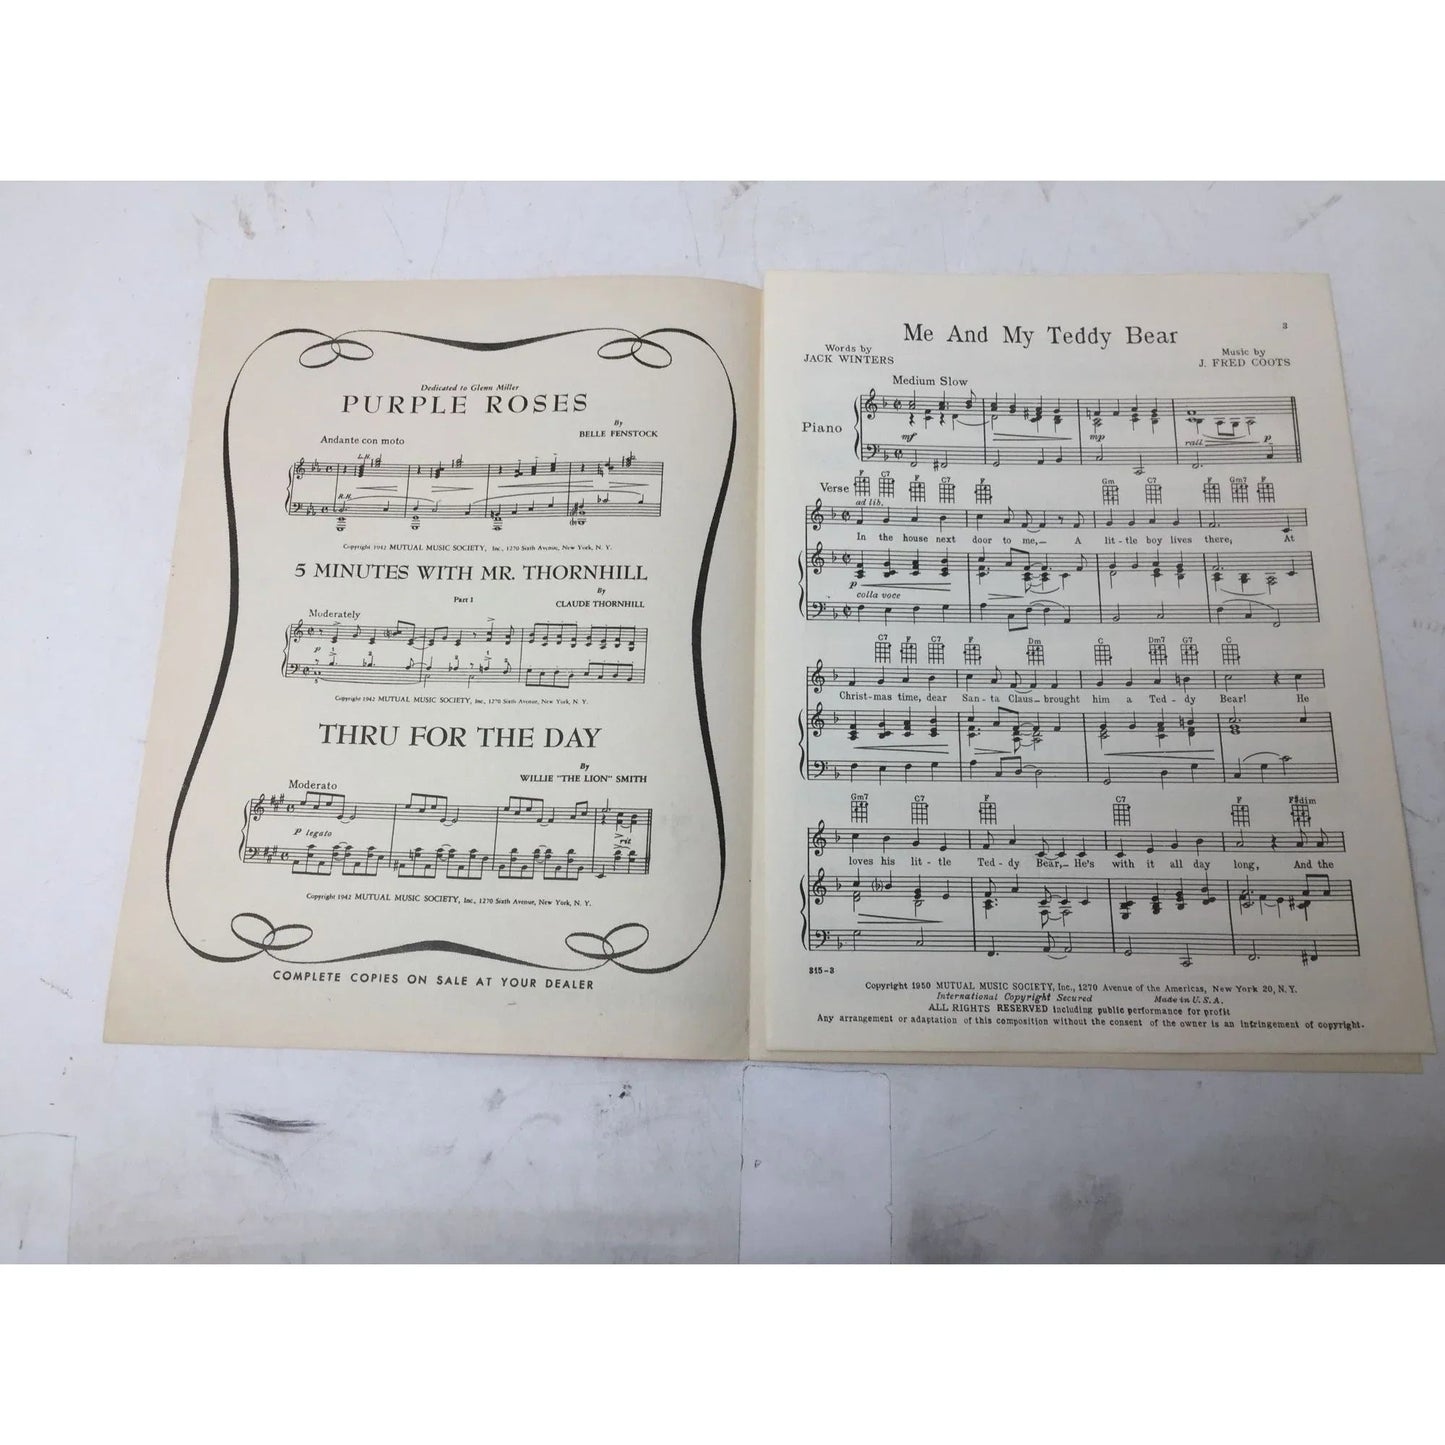 Dedicated to Glenn Miller
PURPLE ROSES
By
BELLE FENSTOCK
Andante con moto
L.H.
R.H.
Copyright 1942 MUTUAL MUSIC SOCIETY, Inc., 1270 Sixth Avenue, New York, N. Y.
5 MINUTES WITH MR. THORNHILL
By
Part I
CLAUDE THORNHILL
Moderately
p
Copyright 1942 MUTUAL MUSIC SOCIETY, Inc., 1270 Sixth Avenue, New York, N. Y.
THRU FOR THE DAY
By
WILLIE "THE LION" SMITH
Moderato
P legato
rit
Copyright 1942 MUTUAL MUSIC SOCIETY, Inc., 1270 Sixth Avenue, New York, N. Y.
COMPLETE COPIES ON SALE AT YOUR DEALER
3
Me And My Teddy Bear
Words by
JACK WINTERS
Music by
J. FRED COOTS
Medium Slow
Piano
mf mp rall p
F C7 F C7 F Gm C7 F Gm7 F
Verse
ad lib.
In the house next door to me,— A lit-tle boy lives there, At
p
colla voce
C7 F C7 F Dm C Dm7 G7 C
Christ-mas time, dear San-ta Claus— brought him a Ted-dy Bear! He
Gm7 C7 F C7 F F#dim
loves his lit-tle Ted-dy Bear,— He's with it all day long, And the
815-3
Copyright 1950 MUTUAL MUSIC SOCIETY, Inc., 1270 Avenue of the Americas, New York 20, N. Y.
International Copyright Secured Made in U. S. A.
ALL RIGHTS RESERVED including public performance for profit
Any arrangement or adaptation of this composition without the consent of the owner is an infringement of copyright.